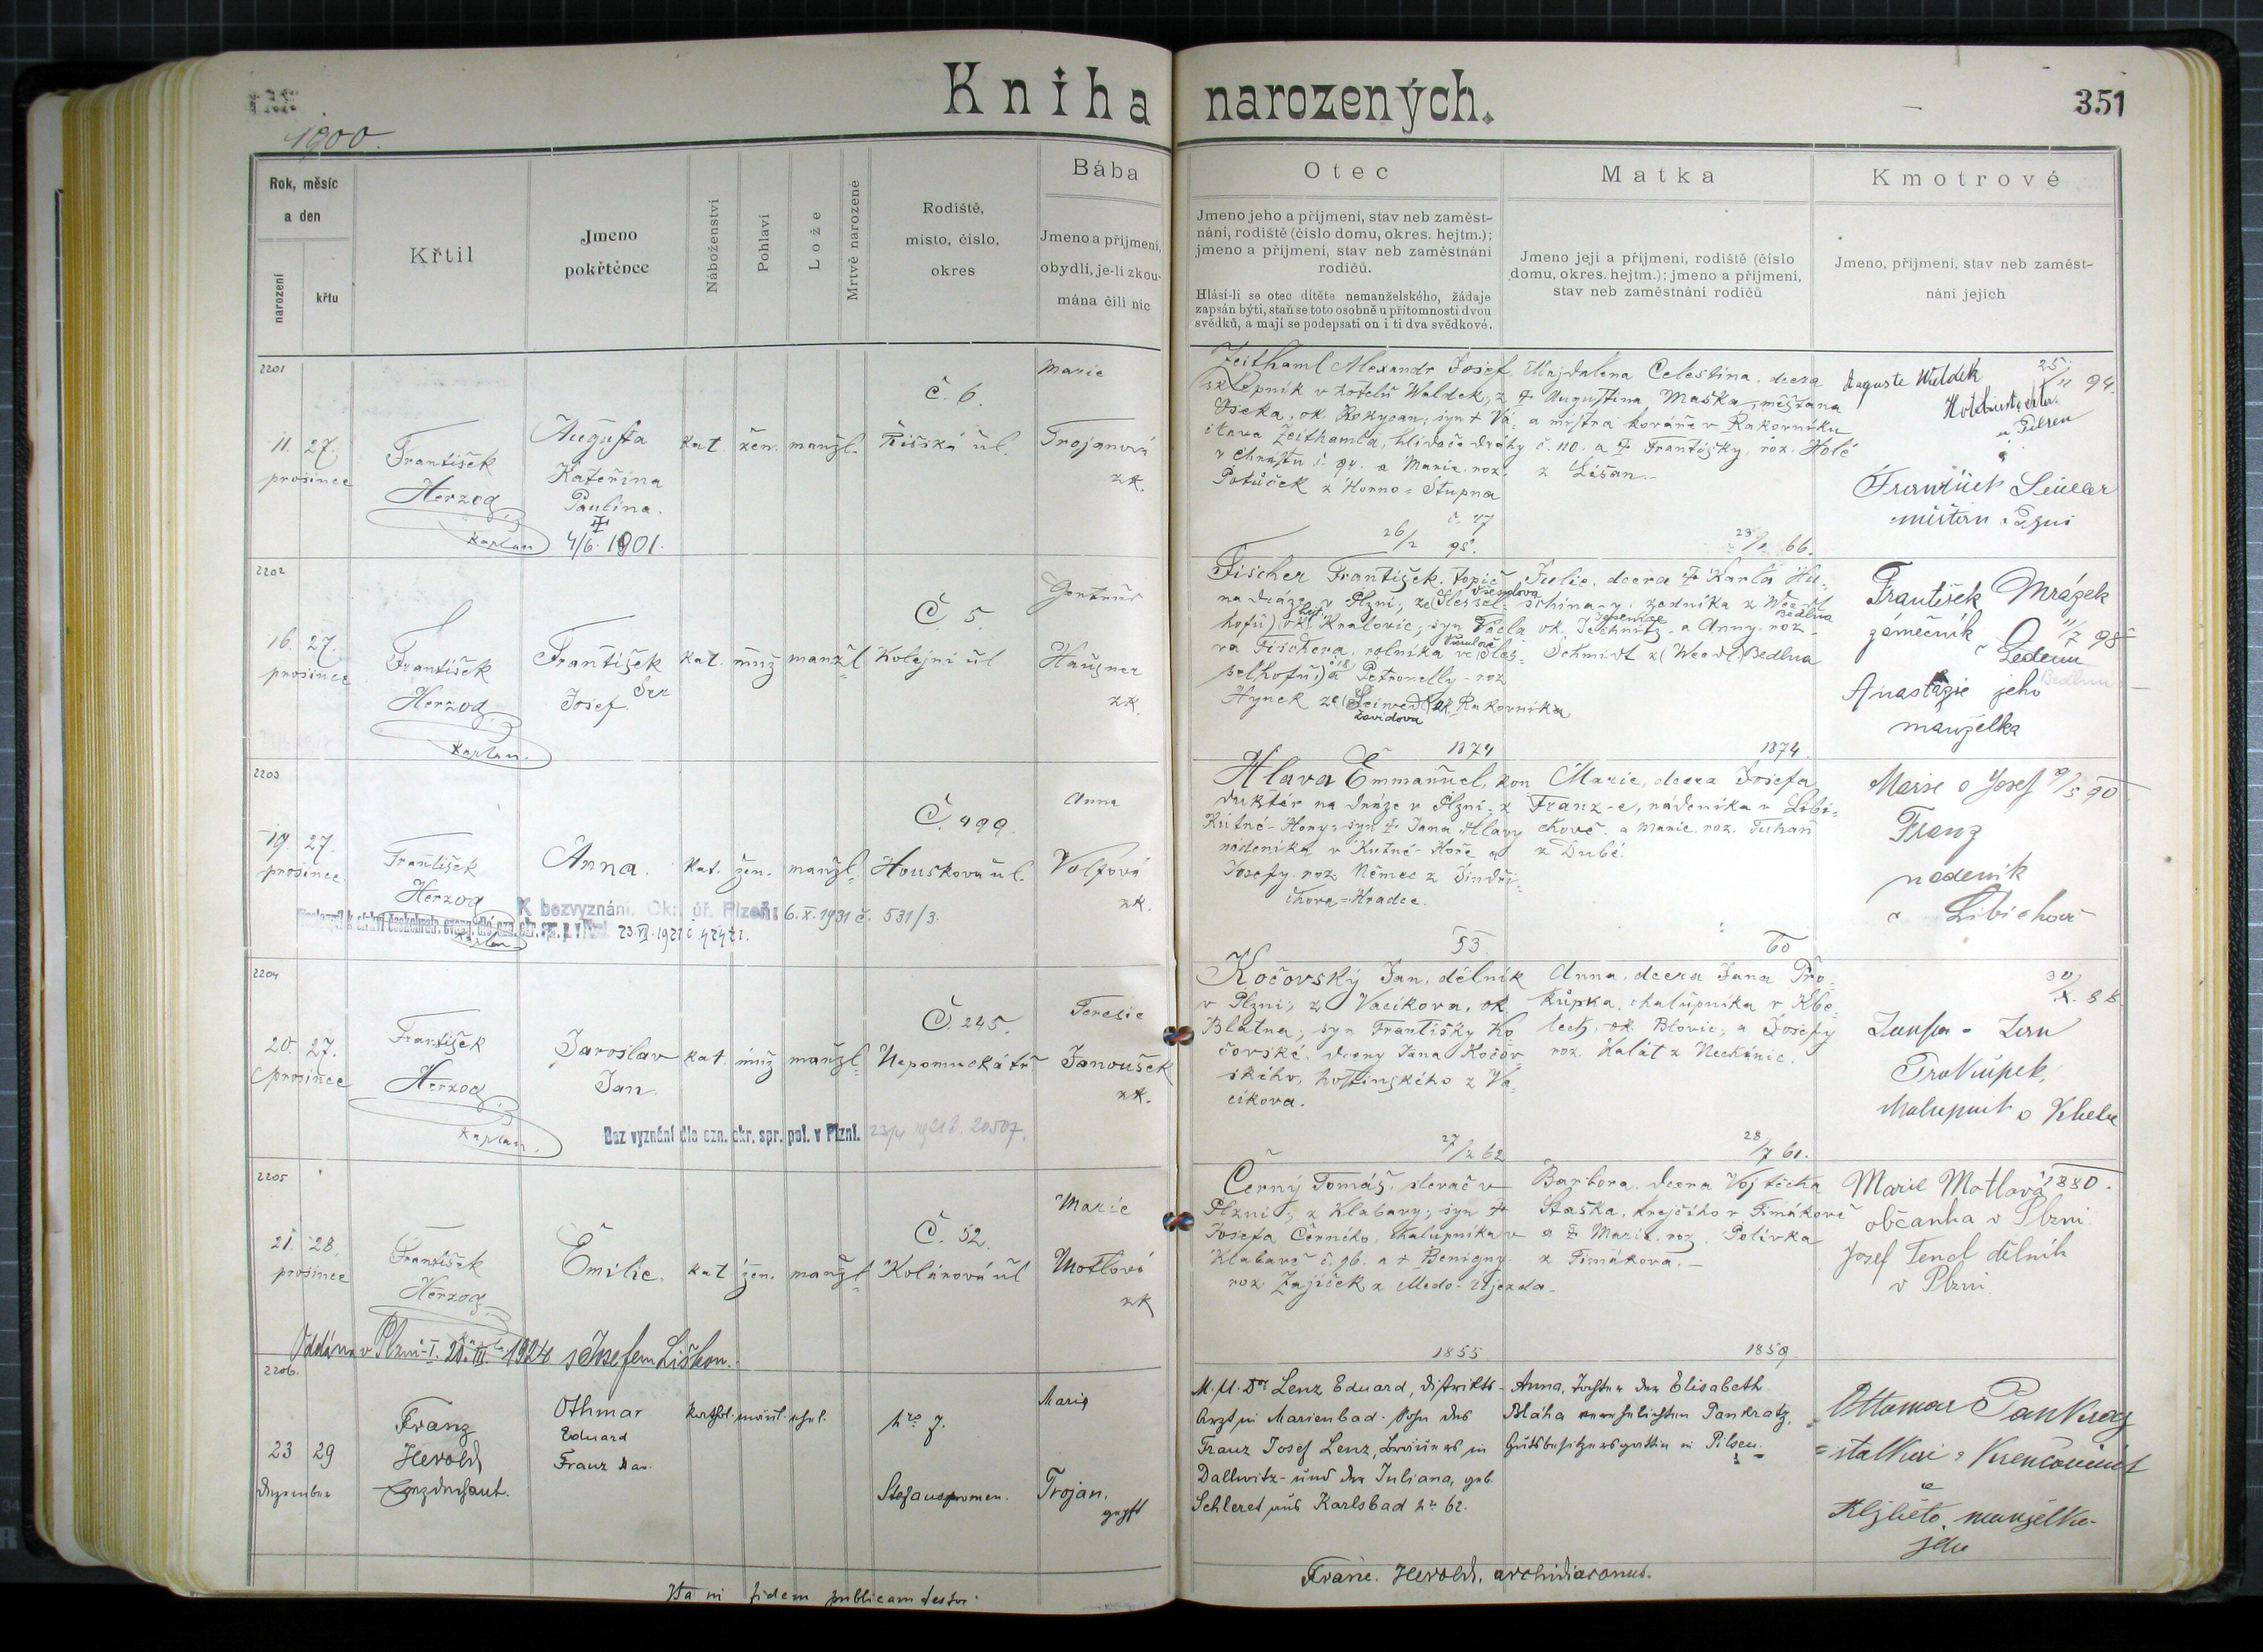 Kniha narozených.
351
1900.
Rok, měsíc
a den
narození
křtu
Křtil
Jmeno
pokřtěnce
Náboženství
Pohlaví
Lože
Mrtvě narozené
Rodiště,
místo, číslo,
okres
Bába
Jmeno a příjmení,
obydlí, je-li zkou-
mána čili nic
Otec
Jmeno jeho a příjmení, stav neb zaměst-
nání, rodiště (číslo domu, okres. hejtm.);
jmeno a příjmení, stav neb zaměstnání
rodičů.
Hlásí-li se otec dítěte nemanželského, žádaje
zapsán býti, staň se toto osobně u přítomnosti dvou
svědků, a mají se podepsati on i ti dva svědkové.
Matka
Jmeno její a příjmení, rodiště (číslo
domu, okres. hejtm.); jmeno a příjmení,
stav neb zaměstnání rodičů
Kmotrové
Jmeno, příjmení, stav neb zaměst-
nání jejich
2201
11. 27.
prosince
František
Herzog
kaplan
Augusta
Kateřina
Paulina.
4/6. 1901.
kat. žen. manžl.
Č. 6.
Říšská ul.
Marie
Trojanová
zk.
Zeithaml Alexandr Josef,
sklepník v hotelu Waldek, z
Oseka, ok. Rokycan; syn † Vá-
clava Zeithamla, hlídače dráhy
v Chrástu č. 94. a Marie roz.
Potůček z Horno-Stupna
č. 47
26/2 95.
Majdalena Celestina, dcera
† Augustina Maška, měšťana
a mistra kováře v Rakovníku
č. 110. a † Františky, roz. Holé
z Lišan.-
29/1 66.
Auguste Waldek 25/11 94.
Pilsen
a
2202
16. 27.
prosince
František
Herzog
kaplan.
František
Josef.
kat. muž manžl
Č 5.
Kolejní ul
Haugner
zk.
Fischer František, topič
na dráze v Plzni, ze (Slessel-
hofu) ok. Kralovic; syn Václa-
va Fischera, rolníka ve (Sles-
selhofu) a Petronelly - roz
Hynek ze ok. Rakovníka
Zavidova
1874
Julie, dcera † Karla Hu-
schina-y, zedníka z
ok. Jechnitz a Anny roz
Schmidt z (Weedl) Bedlna
1874.
František Mrázek
zámečník 11/7 98
Anastazie jeho
manželka
2203
19. 27.
prosince.
František
Herzog
kaplan
Anna.
kat. žen. manžl.
Č. 499.
Houškova ul.
Anna
Volfová
zk.
K bezvyznání. Okr. úř. Plzeň: 6. X. 1931 č. 531/3.
Hlava Emmanuel, kon
duktér na dráze v Plzni, z
Kutné-Hory; syn † Jana Hlavy
nádeníka v Kutné-Hoře a
Josefy roz. Němec z Jindři-
chova-Hradce.
53.
Marie, dcera Josefa
Franz-e, nádeníka v Libě-
chově a Marie roz. Tuhaň
z Dubé.
60
Marie a Josef 9/5 90
Franz
nadeník
2204
20. 27.
prosince
František
Herzog
kaplan.
Jaroslav
Jan.
kat. muž manžl
Č. 245.
Nepomucká tř
Teresie
Janoušek
zk.
Bez vyznání dle ozn. okr. spr. pol. v Plzni. 1921 č. 20507.
Kočovský Jan, dělník
v Plzni, z Vacíkova, ok.
Blatna; syn Františky Ko-
čovské, dcery Jana Kočov
ského, hostinského z Va-
cíkova.
27/2 62
Anna, dcera Jana Pro-
kůpka, chalupníka v Kbe-
lech, ok. Blovic, a Josefy
roz. Kalát z Neckánic.
28/7 61.
30/X. 88.
Prokůpek,
2205
21. 28.
prosince
František
Herzog
Emilie.
kat žen. manžl
Č. 52.
Kolárová ul
Marie
Motlová
zk
Oddána v Plzni-I. 1924 s Josefem Liškou.
Černý Tomáš, slevač v
Plzni, z Klabavy; syn †
Josefa Černého, chalupníka v
Klabavě č. 96. a † Benigny
roz. Zajíček z Medo-Újezda-
1855.
Barbora, dcera Vojtěcha
Staška, krejčího v Timákově
a † Marie, roz. Polívka
z Timákova.-
1859.
Marie Motlová 1880.
občanka v Plzni
Josef Tencl dělník
v Plzni.
2206.
23 29
Dezember
Franz
Herold
Othmar
Eduard
Franz
kathol. männl. ehel.
Nro 7.
Stefanspromen.
Marie
Trojan.
gepft
M. U. Dor Lenz Eduard, Distrikts-
Arzt in Marienbad. Sohn des
Franz Josef Lenz, Bräuers in
Dallwitz- und der Juliana, geb.
Schleret aus Karlsbad No 62.
Anna, Tochter der Elisabeth
Bláha verehelichten Pankratz,
Gutsbesitzersgattin in Pilsen.
Ottomar Pankraz
a
Alžběta, manželka
jeho
Ita in fidem publicam testor
Franc. Herold, archidiaconus.